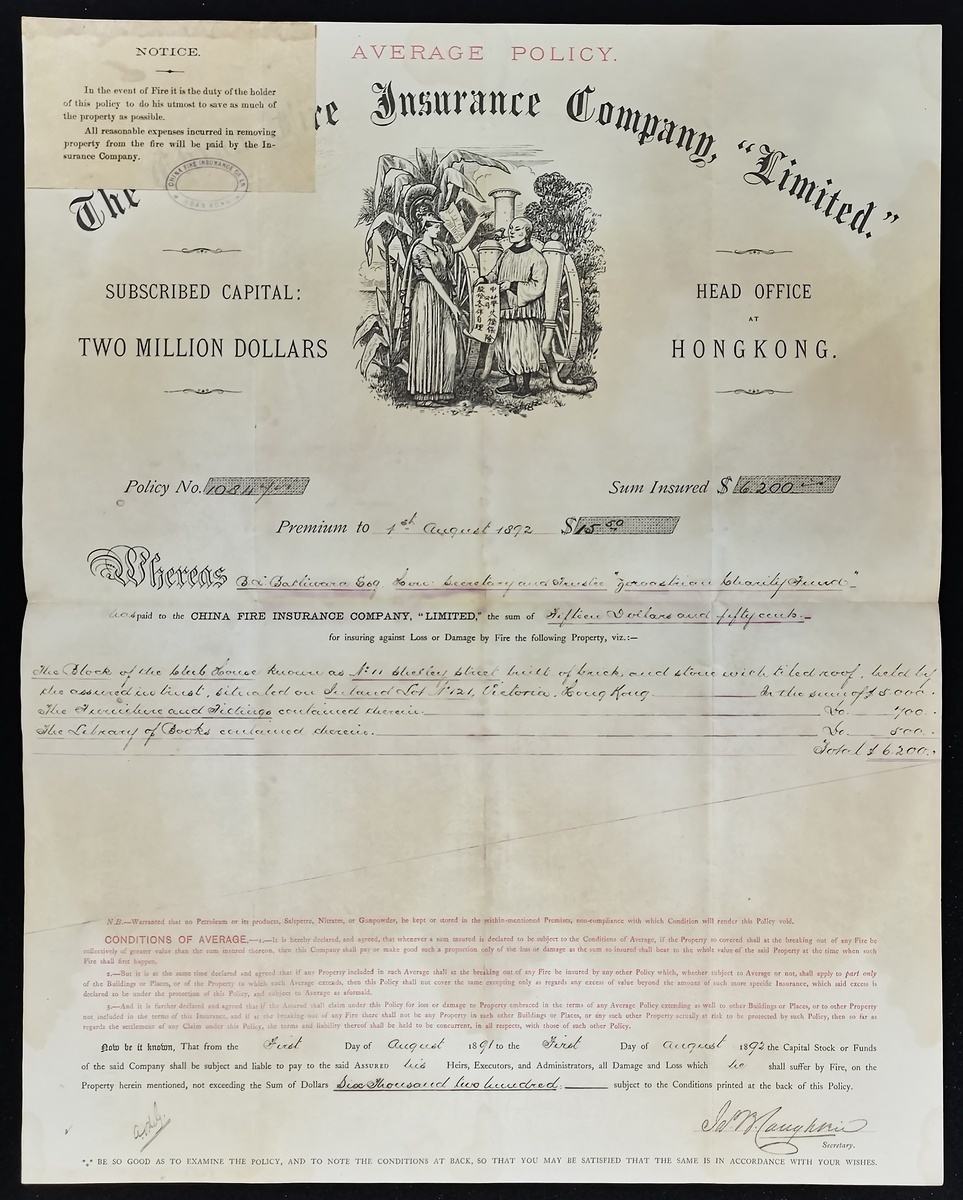 NOTICE.
In the event of Fire it is the duty of the holder
of this policy to do his utmost to save as much of
the property as possible.
All reasonable expenses incurred in removing
property from the fire will be paid by the In-
surance Company.
CHINA FIRE INSURANCE CO
HONG KONG
AVERAGE POLICY.
The re Insurance Company, "Limited."
SUBSCRIBED CAPITAL:
TWO MILLION DOLLARS
HEAD OFFICE
AT
HONGKONG.
中華火燭保險
公司
股份各保自理
Policy No.
Sum Insured $ 6.200
Premium to 1st August 1892 $ 15 50
Whereas Esq. Hon: Secretary and Trustee "Zoroastrian Charity Fund"
has paid to the CHINA FIRE INSURANCE COMPANY, "LIMITED," the sum of Fifteen Dollars and fifty cents.
for insuring against Loss or Damage by Fire the following Property, viz.:—
The Block of the Club House known as No 11 Shelley Street built of brick and stone with tiled roof, held by
the assured in trust, situated on Inland Lot No 121, Victoria, Hong Kong In the sum of $5000.
The Furniture and Fittings contained therein. Do. 700.
The Library of Books contained therein. Do. 500.
Total $6.200.
N.B.—Warranted that no Petroleum or its products, Saltpetre, Nitrates, or Gunpowder, be kept or stored in the within-mentioned Premises, non-compliance with which Condition will render this Policy void.
CONDITIONS OF AVERAGE.—1.—It is hereby declared, and agreed, that whenever a sum insured is declared to be subject to the Conditions of Average, if the Property so covered shall at the breaking out of any Fire be
collectively of greater value than the sum insured thereon, then this Company shall pay or make good such a proportion only of the loss or damage as the sum so insured shall bear to the whole value of the said Property at the time when such
Fire shall first happen.
2.—But it is at the same time declared and agreed that if any Property included in such Average shall at the breaking out of any Fire be insured by any other Policy which, whether subject to Average or not, shall apply to part only
of the Buildings or Places, or of the Property to which such Average extends, then this Policy shall not cover the same excepting only as regards any excess of value beyond the amount of such more specific Insurance, which said excess is
declared to be under the protection of this Policy, and subject to Average as aforesaid.
3.—And it is further declared and agreed that if the Assured shall claim under this Policy for loss or damage to Property embraced in the terms of any Average Policy extending as well to other Buildings or Places, or to other Property
not included in the terms of this Insurance, and if at the breaking out of any Fire there shall not be any Property in such other Buildings or Places, or any such other Property actually at risk to be protected by such Policy, then so far as
regards the settlement of any Claim under this Policy, the terms and liability thereof shall be held to be concurrent, in all respects, with those of such other Policy.
Now be it known, That from the First Day of August 1891 to the First Day of August 1892 the Capital Stock or Funds
of the said Company shall be subject and liable to pay to the said ASSURED his Heirs, Executors, and Administrators, all Damage and Loss which he shall suffer by Fire, on the
Property herein mentioned, not exceeding the Sum of Dollars Six Thousand two hundred. subject to the Conditions printed at the back of this Policy.
Secretary.
*** BE SO GOOD AS TO EXAMINE THE POLICY, AND TO NOTE THE CONDITIONS AT BACK, SO THAT YOU MAY BE SATISFIED THAT THE SAME IS IN ACCORDANCE WITH YOUR WISHES.